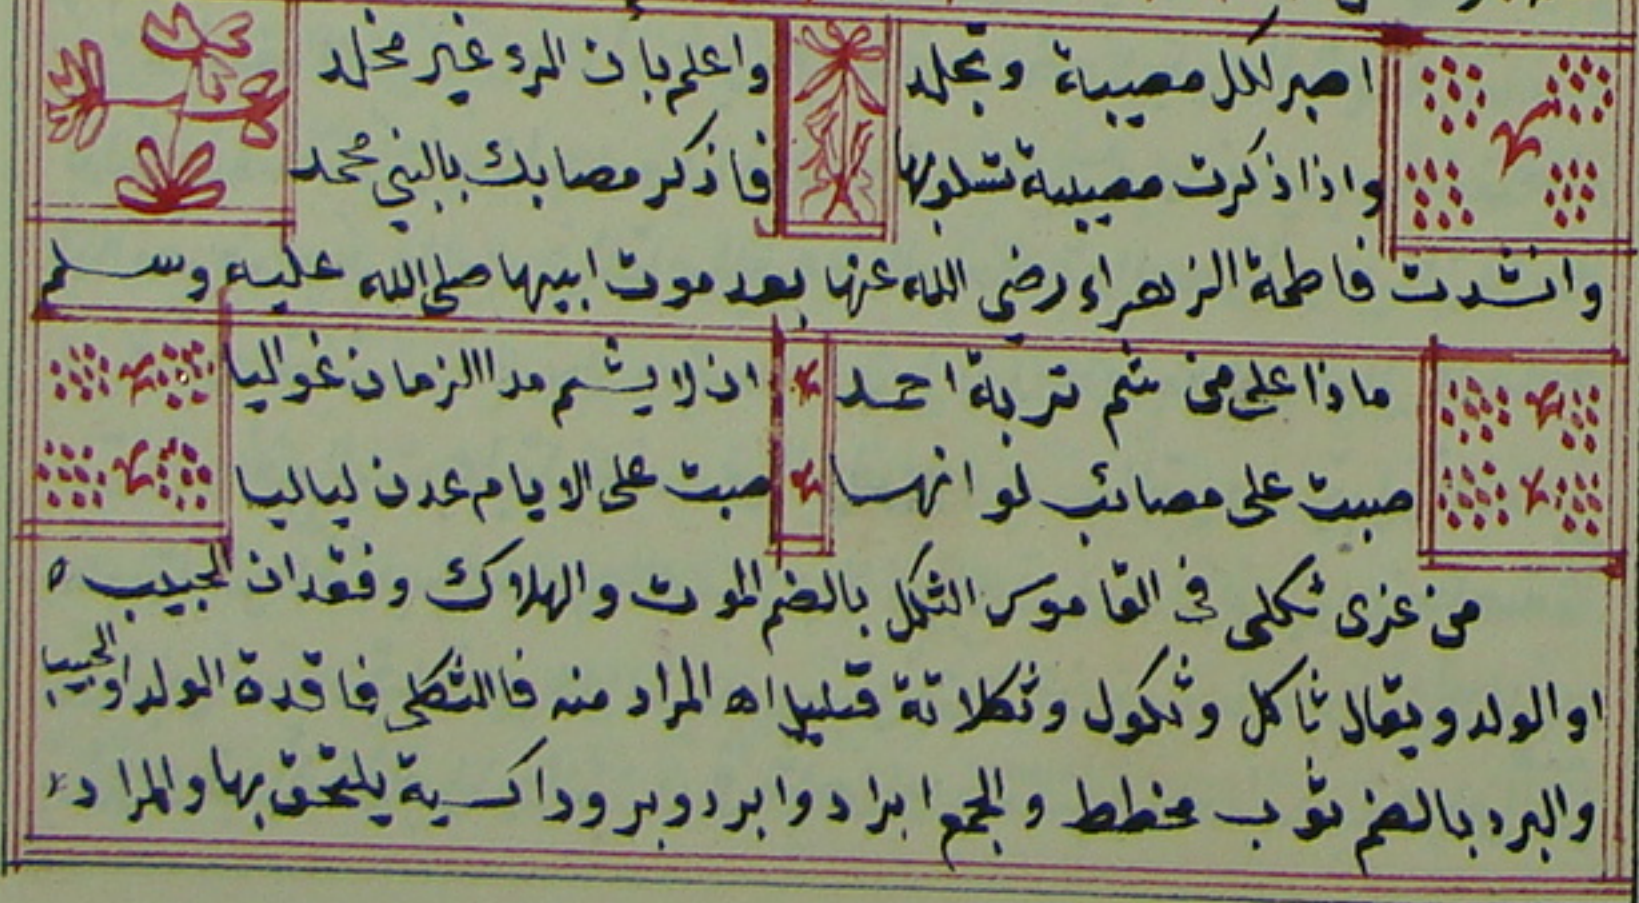 اصبر لكل مصيبة وتجلد واعلم بان المرء غير مخلد
واذا ذكرت مصيبة تسلو بها فاذكر مصابك بالنبي محمد
وانشدت فاطمة الزهراء رضي الله عنها بعد موت ابيها صلى الله عليه وسلم
ماذا على من شم تربة احمد ان لا يشم مدا الزمان غواليا
صبت على مصائب لو انها صبت على الايام عدن لياليا
من عزى ثكلى في القاموس الثكل بالضم الموت والهلاك وفقدان الحبيب
او الولد ويقال ثاكل وثكول وثكلانة قليل اه المراد منه فالثكلى فاقدة الولد او الحبيب
والبرد بالضم ثوب مخطط والجمع ابراد وابرد وبرود اكسية يلتحق بها والمراد